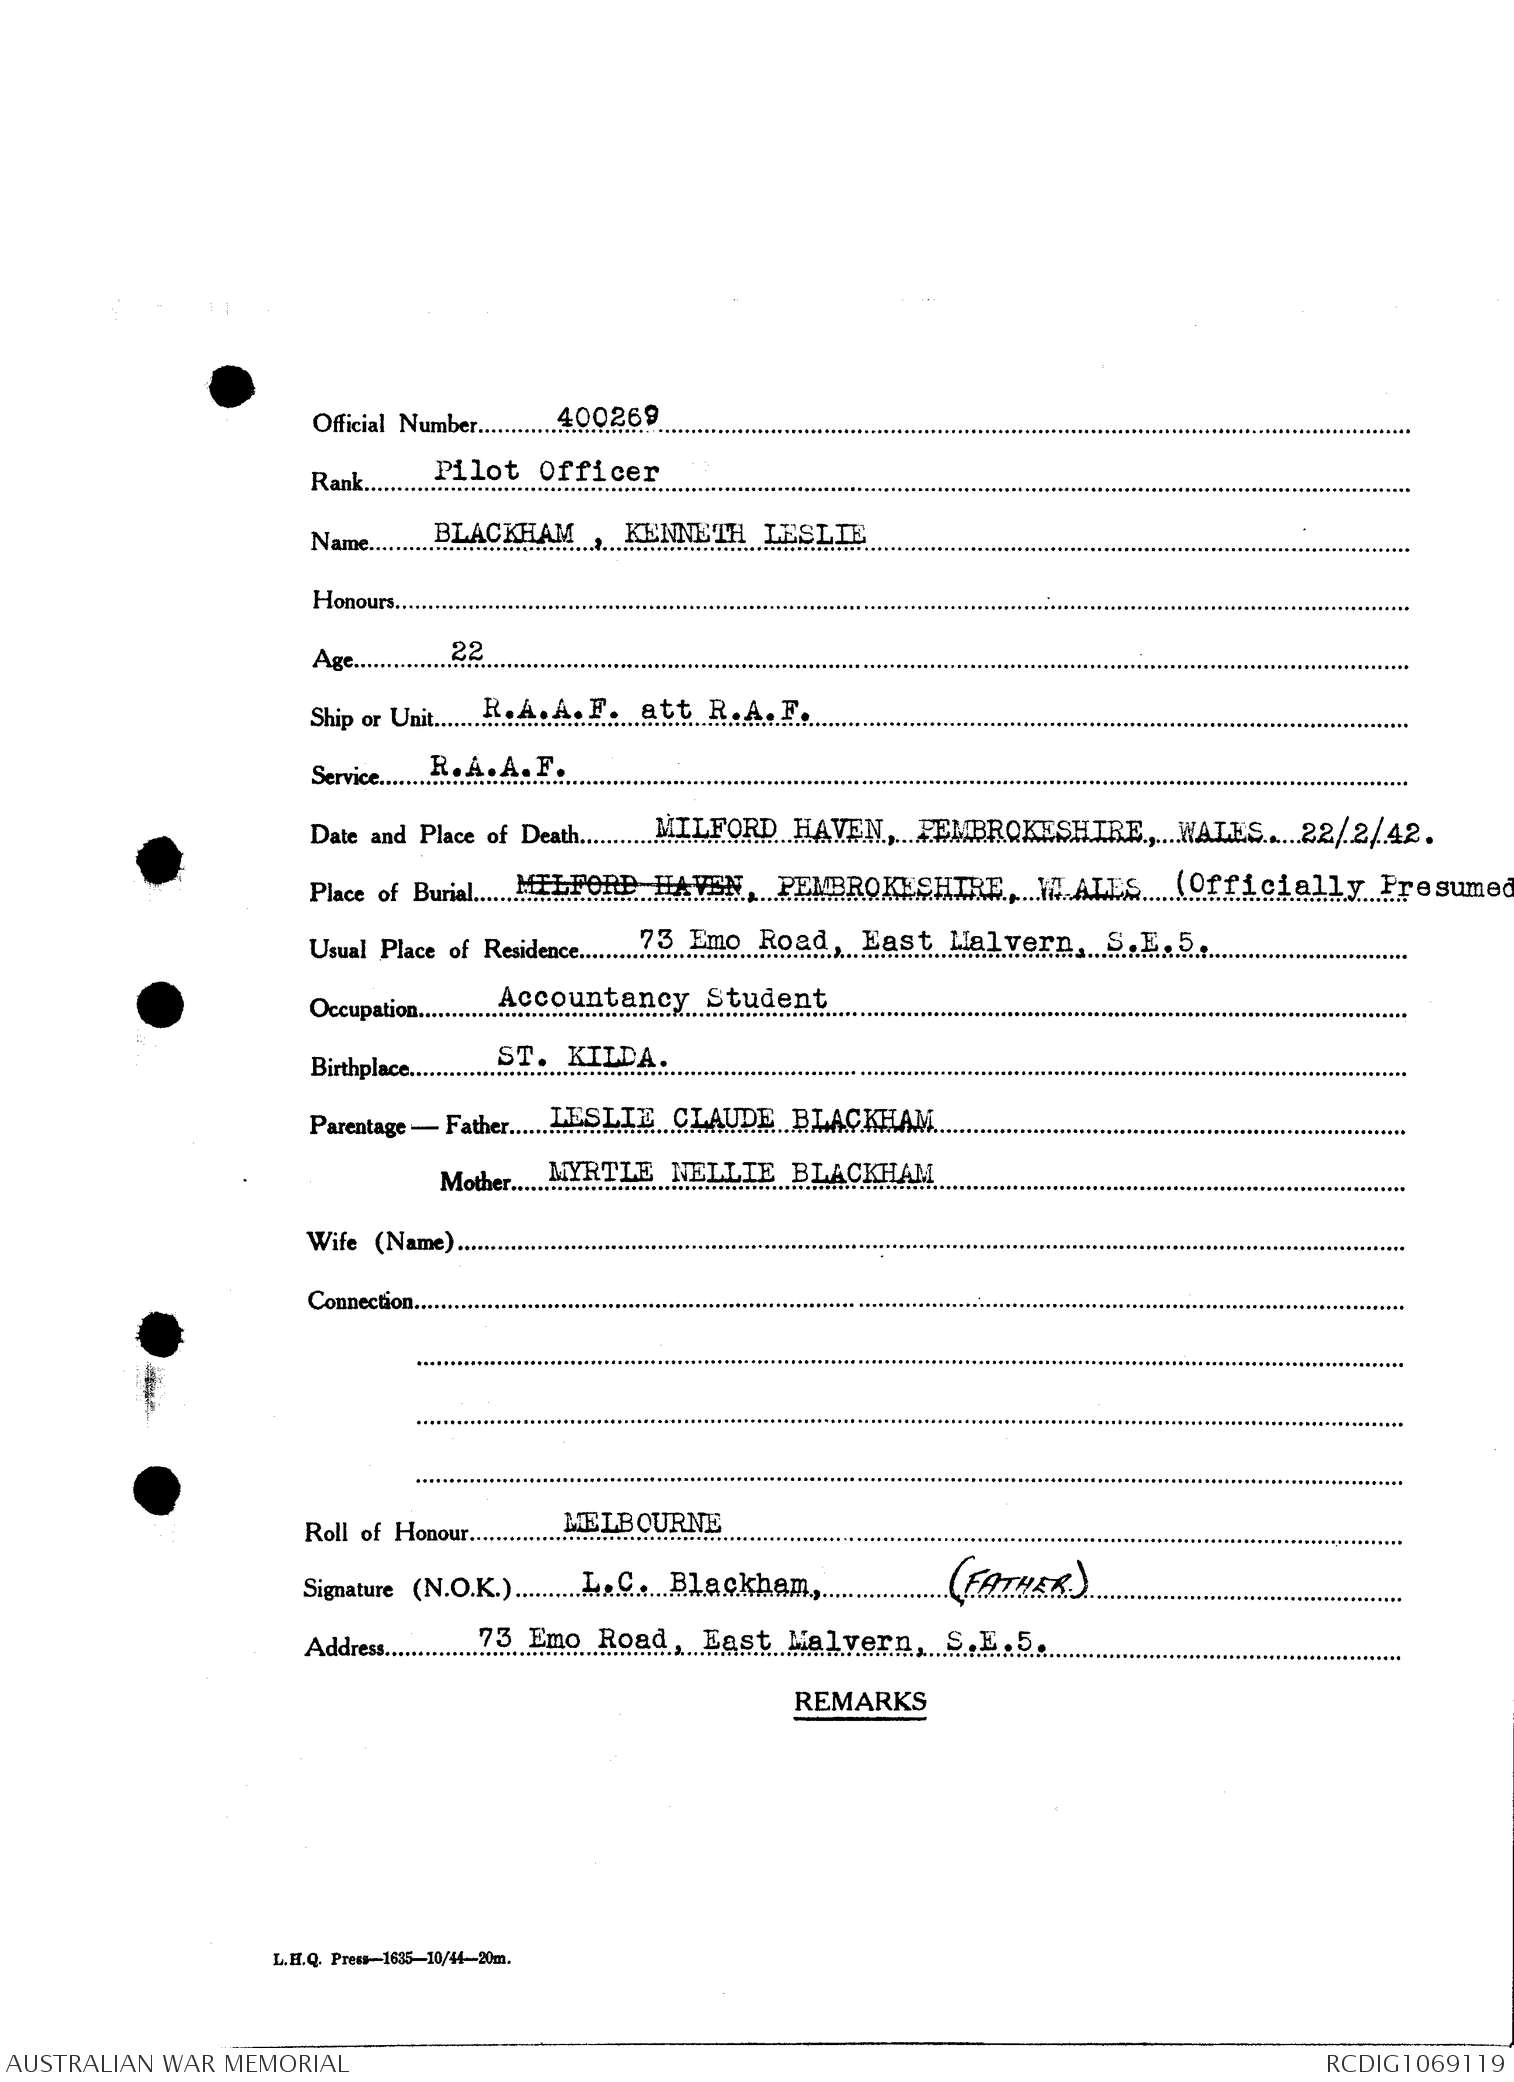 Official Number 400269
Rank Pilot Officer
Name BLACKHAM , KENNETH LESLIE
Honours
Age 22
Ship or Unit R.A.A.F. att R.A.F.
Service R.A.A.F.
Date and Place of Death MILFORD HAVEN, PEMBROKESHIRE, WALES. 22/2/42.
Place of Burial MILFORD HAVEN, PEMBROKESHIRE, WLALES (Officially Presumed
Usual Place of Residence 73 Emo Road, East Malvern, S.E.5.
Occupation Accountancy Student
Birthplace ST. KILDA.
Parentage — Father LESLIE CLAUDE BLACKHAM
Mother MYRTLE NELLIE BLACKHAM
Wife (Name)
Connection
Roll of Honour MELBOURNE
Signature (N.O.K.) L.C. Blackham, (FATHER)
Address 73 Emo Road, East Malvern, S.E.5.
REMARKS
L.H.Q. Press—1635—10/44—20m.
AUSTRALIAN WAR MEMORIAL RCDIG1069119